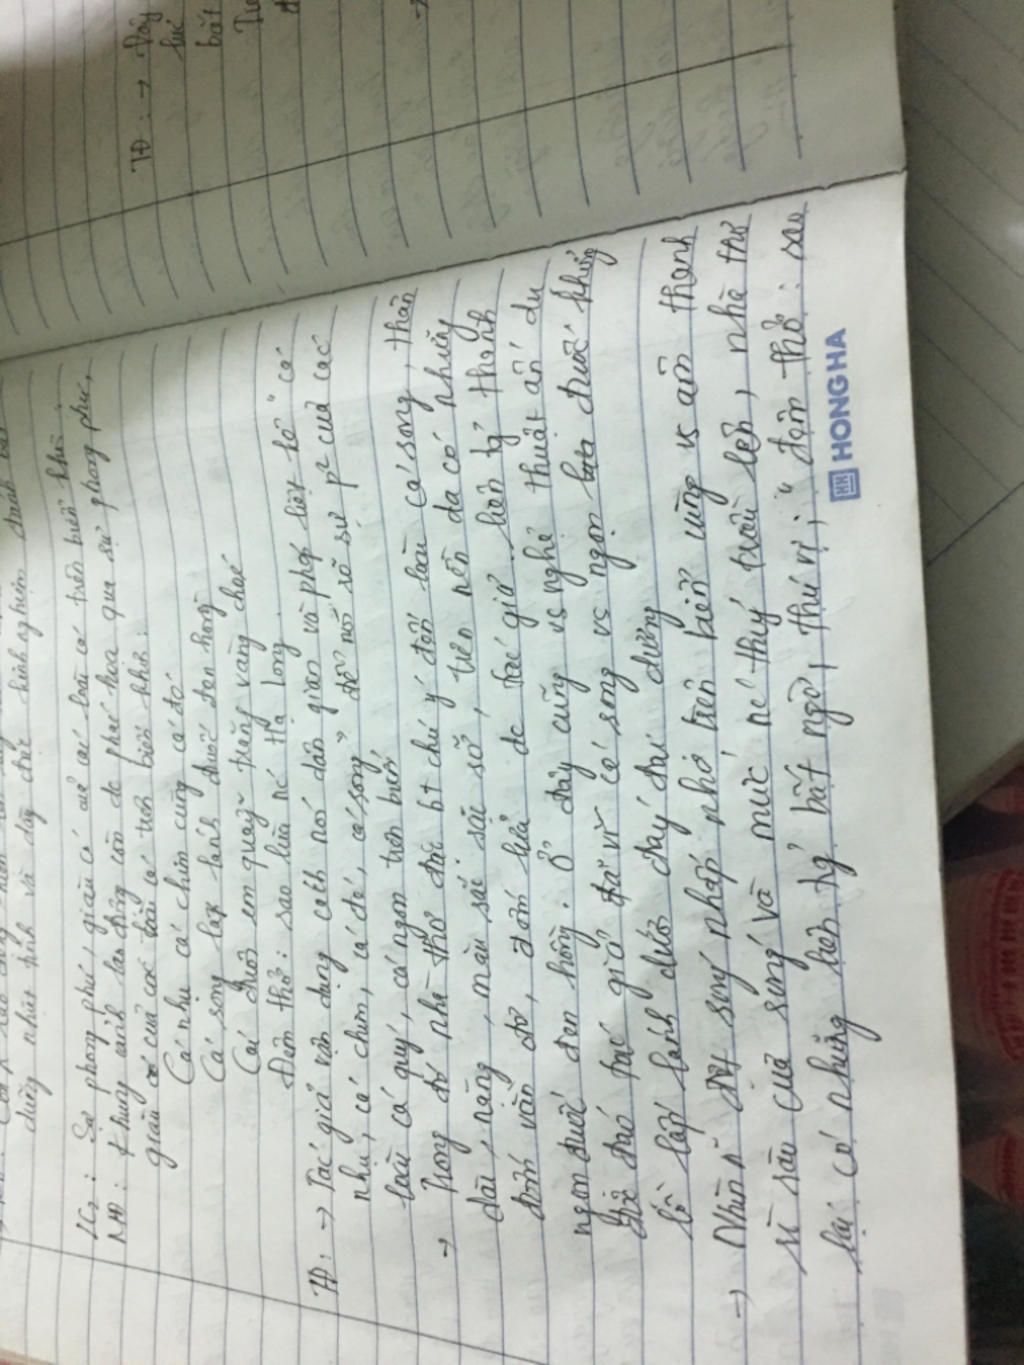 dưỡng nhuệ tính và dày chí kinh nghiệm đánh bắt
LC2: Sự phong phú, giàu có của các loài cá trên biển khơi.
NĐ: Khung cảnh lao động còn đc phác họa qua sự phong phú,
giàu có của các loài cá trên biển khơi:
Cá nhụ cá chim cùng cá đé
Cá song lấp lánh đuốc đen hồng
Cái đuôi em quẫy trăng vàng choé
Đêm thở: sao lùa nc Hạ Long.
TĐ: → Tác giả vận dụng cách nói dân gian và phép liệt kê "cá
nhụ, cá chim, cá đé, cá song" để nói rõ sự p² của các
loài cá quý, cá ngon trên biển,
→ Trong đó nhà thơ đặc bt chú ý đến loài cá song, thân
dài, nặng, màu sắc sặc sỡ, trên nền da có những
đốm vằn đỏ, đốm lửa đc tác giả liên tg thành
ngọn đuốc đen hồng. Ở đây cũng vs nghệ thuật ẩn dụ
độc đáo tác giả đã ví cá song vs ngọn đuốc khổng
lồ lấp lánh dưới đáy đại dương
→ Nhìn n đợt sóng nhấp nhô trên biển cùng vs âm thanh
rì rào của sóng và mực nc thuỷ triều lên, nhà thơ
lại có những liên tg bất ngờ, thú vị; "đêm thở: sao
HONG HA
TĐ: → Đây
bắt